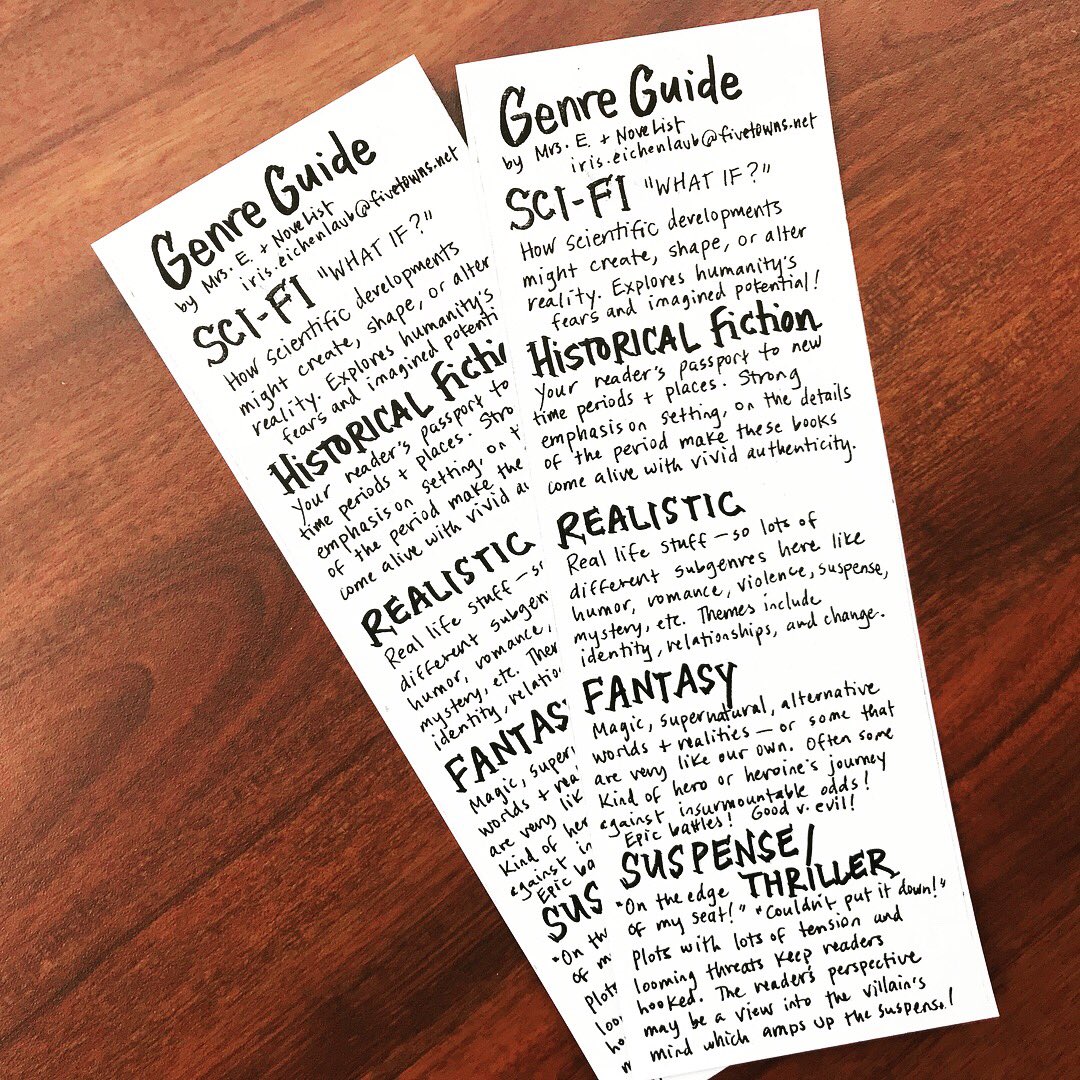 Genre Guide
by Mrs. E. + NoveList
iris.eichenlaub@fivetowns.net
SCI-FI "WHAT IF?"
How scientific developments
might create, shape, or alter
reality. Explores humanity's
fears and imagined potenti
HISTORICAL Fictio
Your reader's passport to
time periods + places. Stro
emphasis on setting, on t
of the period make the
come alive with vivid au
REALISTIC
Real life stuff – so
different subgen
humor, romance,
mystery, etc. Ther
identity, relatio
FANTAS
Magic, super
worlds + rea
are very lik
Kind of her
against in
Epic ba
SUS
"On th
of m
Plots
loo
ho
m
Genre Guide
by Mrs. E. + NoveList
iris.eichenlaub@fivetowns.net
SCI-FI "WHAT IF?"
How scientific developments
might create, shape, or alter
reality. Explores humanity's
fears and imagined potential!
HISTORICAL Fiction
Your reader's passport to new
time periods + places. Strong
emphasis on setting, on the details
of the period make these books
come alive with vivid authenticity.
REALISTIC
Real life stuff – so lots of
different subgenres here like
humor, romance, violence, suspense,
mystery, etc. Themes include
identity, relationships, and change.
FANTASY
Magic, supernatural, alternative
worlds + realities – or some that
are very like our own. Often some
Kind of hero or heroine's journey
against insurmountable odds!
Epic battles! Good v. evil!
SUSPENSE/
THRILLER
"On the edge
of my seat!" "Couldn't put it down!"
Plots with lots of tension and
looming threats keep readers
hooked. The reader's perspective
may be a view into the villain's
mind which amps up the suspense!